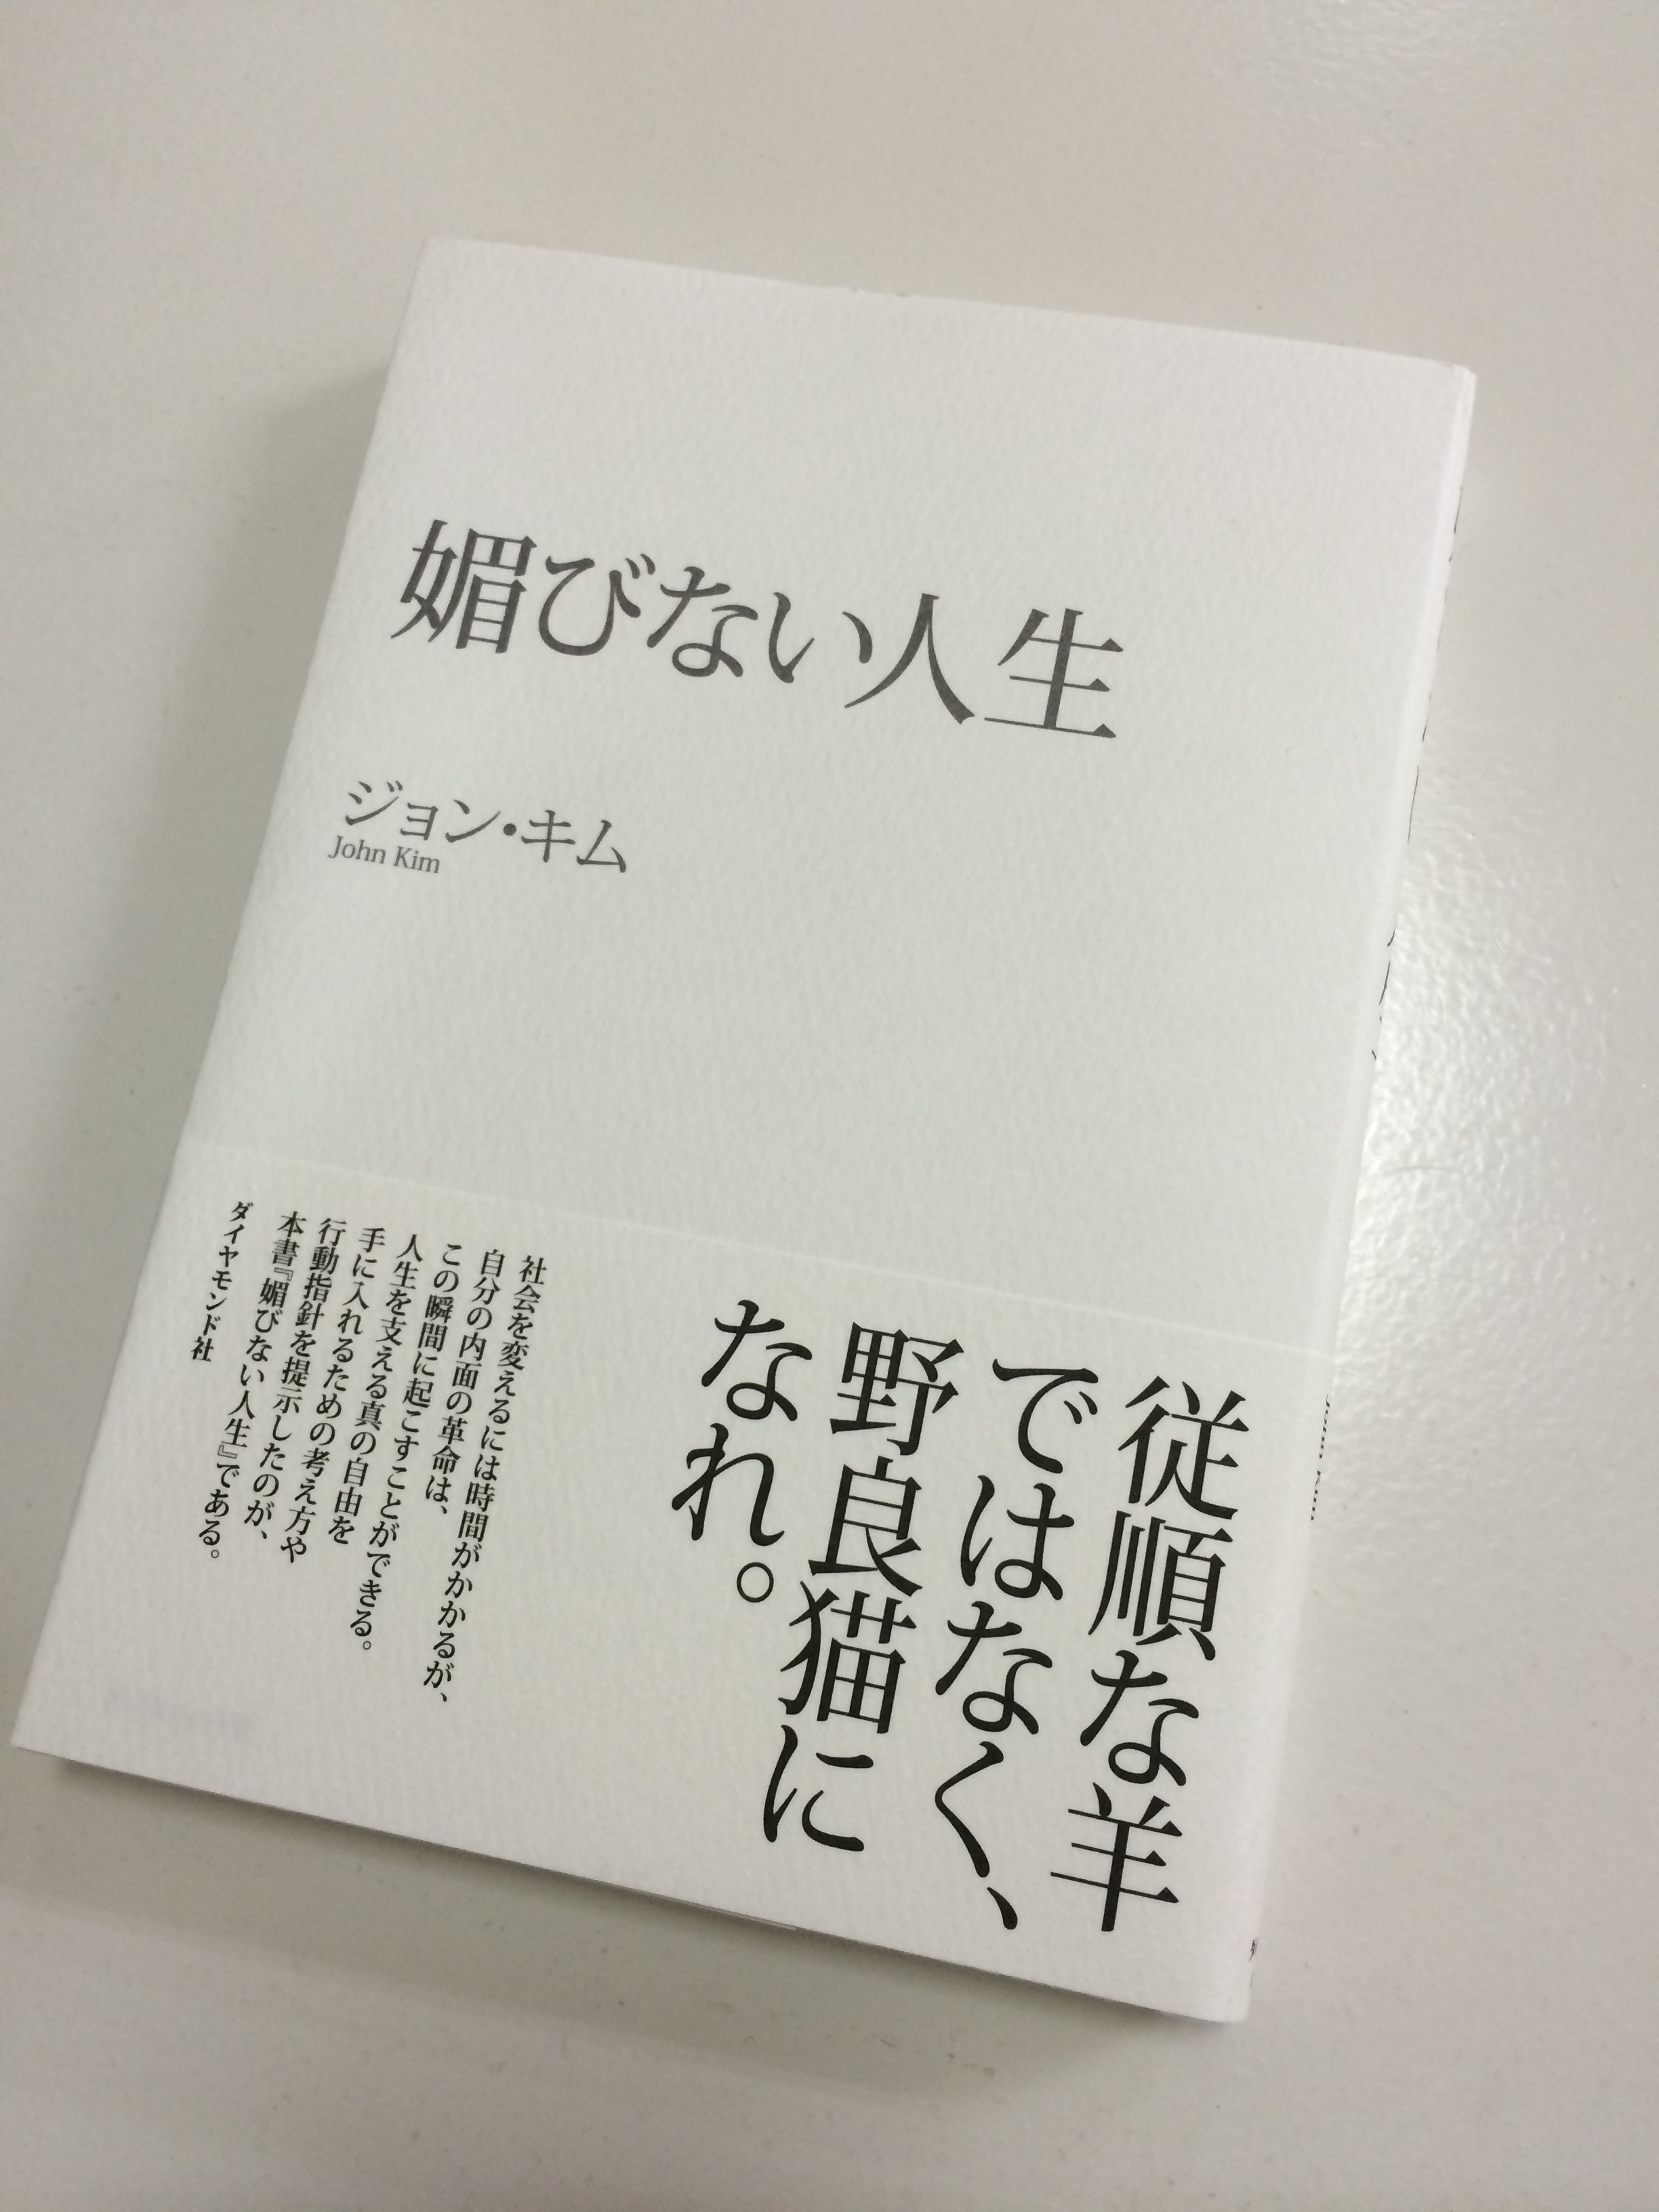 媚びない人生
ジョン・キム
John Kim
従順な羊
ではなく、
野良猫に
なれ。
社会を変えるには時間がかかるが、
自分の内面の革命は、
この瞬間に起こすことができる。
人生を支える真の自由を
手に入れるための考え方や
行動指針を提示したのが、
本書『媚びない人生』である。
ダイヤモンド社